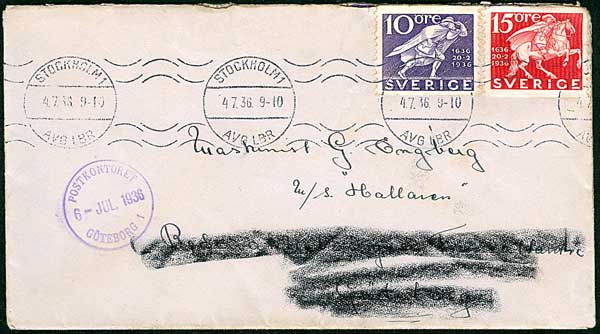 10 öre
1636
20-2
1936
SVERIGE
15 öre
1636
20-2
1936
SVERIGE
STOCKHOLM 1
4.7.36. 9-10
AVG LBR
STOCKHOLM 1
4.7.36. 9-10
AVG LBR
4.7.36. 9-10
AVG LBR
Maskinist G Engberg
m/s. "Hallaren"
POSTKONTORET
6-JUL.1936
GÖTEBORG 1